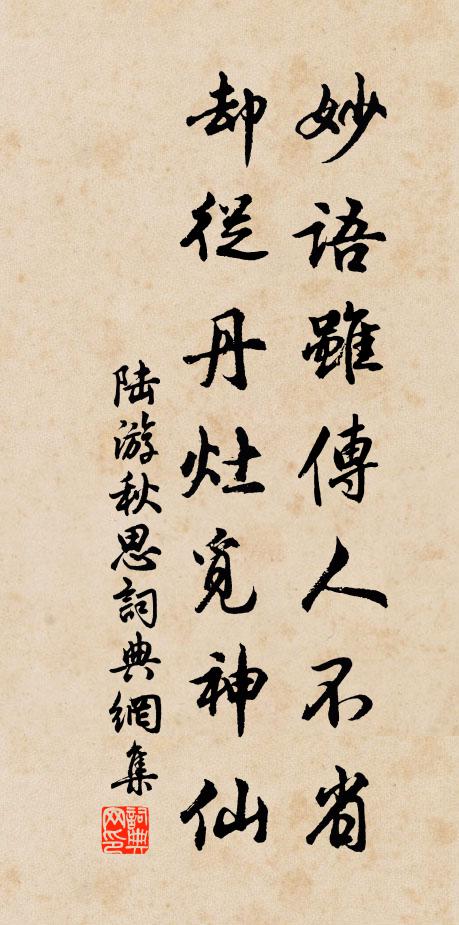 妙語雖傳人不省
却從丹灶覓神仙
陸游秋思詞典網集
詞典网印